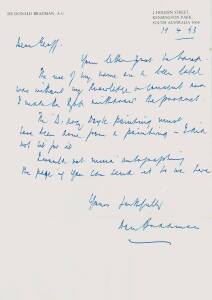 SIR DONALD BRADMAN, A.C.
2 HOLDEN STREET,
KENSINGTON PARK,
SOUTH AUSTRALIA 5068
19 4 93
Dear Geoff,
Your letter to hand.
The use of my name on a beer label
was without my knowledge or consent and
I made withdraw the product.
The D'Arcy Doyle painting must
have been done from a painting - I did
not sit for it
I would not mind autographing
the page if you can send it to me here
Yours faithfully
Don Bradman